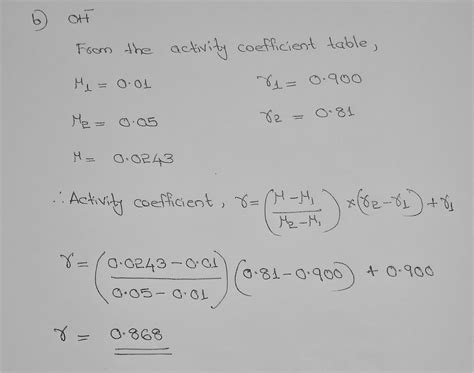 b) OH⁻
From the activity coefficient table,
μ₁ = 0.01 γ₁ = 0.900
μ₂ = 0.05 γ₂ = 0.81
μ = 0.0243
∴ Activity coefficient, γ = ((μ-μ₁)/(μ₂-μ₁)) × (γ₂-γ₁) + γ₁
γ = ((0.0243-0.01)/(0.05-0.01)) (0.81-0.900) + 0.900
γ = 0.868